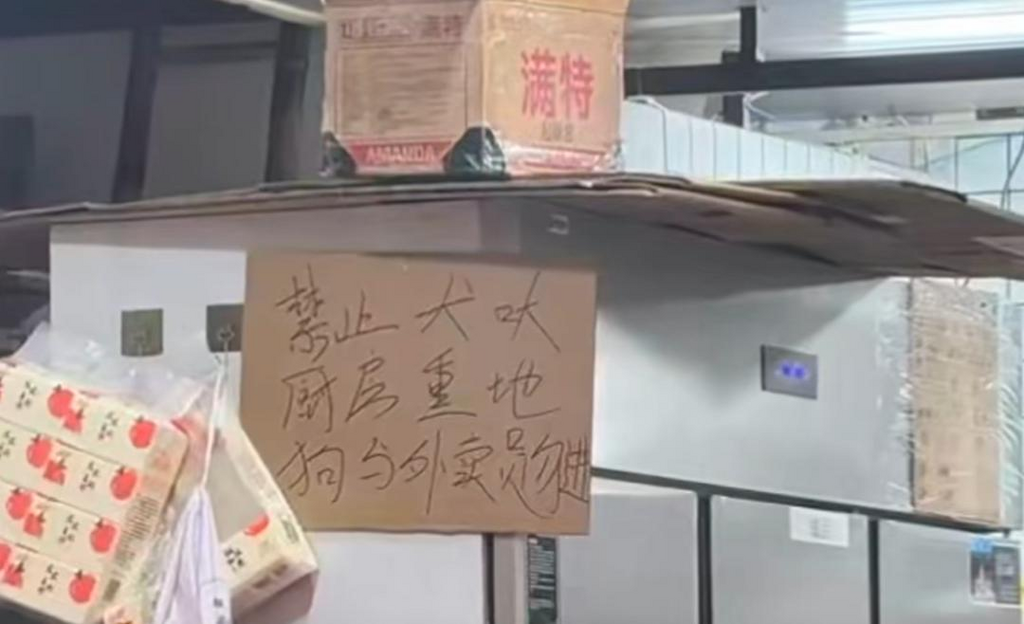 满特
AMANDA
禁止犬吠
厨房重地
狗与外卖员勿进